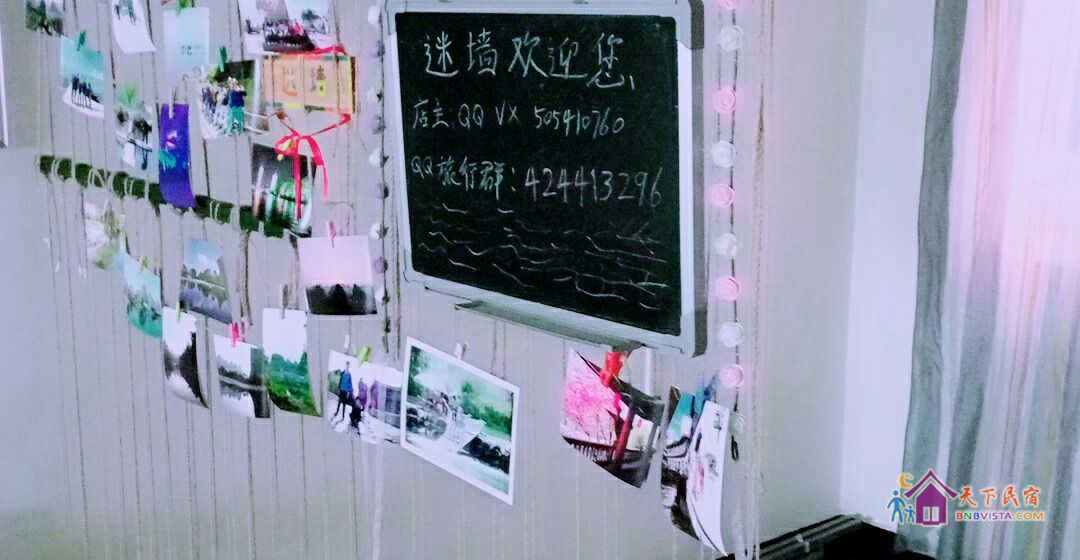 迷墙欢迎您
店主 QQ VX 505410760
QQ旅行群:424413296
天下民宿
BNBVISTA.COM